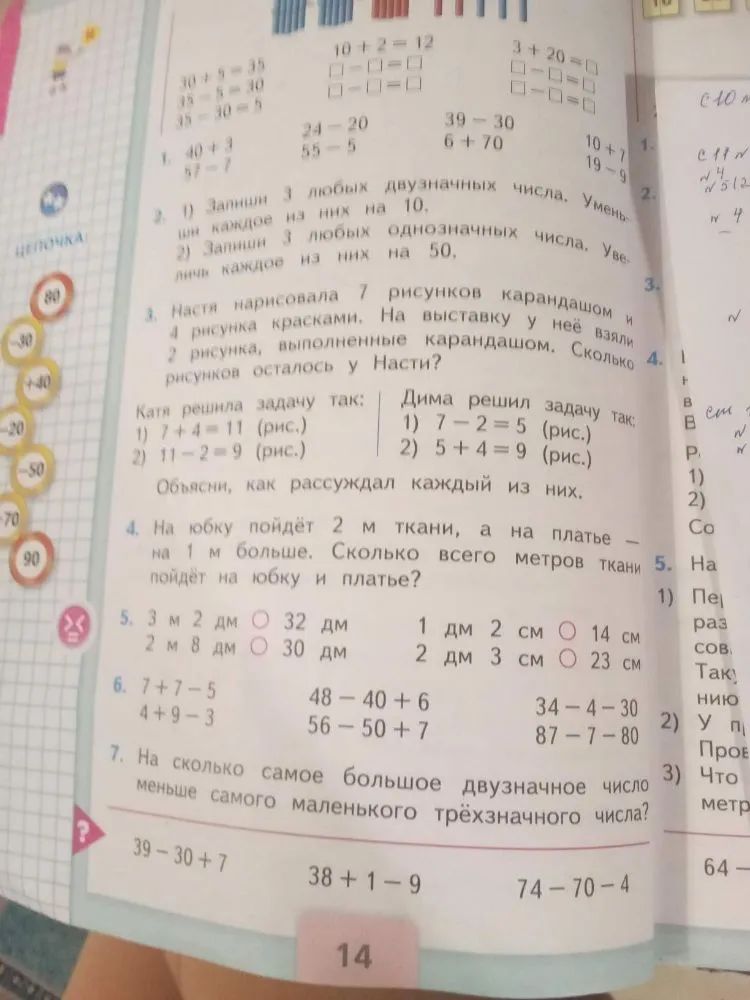 10 + 2 = 12
3 + 20 = □
30 + 5 = 35
□ − □ = □
□ − □ = □
35 − 5 = 30
□ − □ = □
□ − □ = □
35 − 30 = 5
1. 40 + 3
24 − 20
39 − 30
10 + 7
57 − 7
55 − 5
6 + 70
19 − 9
2. 1) Запиши 3 любых двузначных числа. Умень-
ши каждое из них на 10.
2) Запиши 3 любых однозначных числа. Уве-
личь каждое из них на 50.
3. Настя нарисовала 7 рисунков карандашом и
4 рисунка красками. На выставку у неё взяли
2 рисунка, выполненные карандашом. Сколько
рисунков осталось у Насти?
Катя решила задачу так:
1) 7 + 4 = 11 (рис.)
2) 11 − 2 = 9 (рис.)
Дима решил задачу так:
1) 7 − 2 = 5 (рис.)
2) 5 + 4 = 9 (рис.)
Объясни, как рассуждал каждый из них.
4. На юбку пойдёт 2 м ткани, а на платье —
на 1 м больше. Сколько всего метров ткани
пойдёт на юбку и платье?
5. 3 м 2 дм ○ 32 дм
1 дм 2 см ○ 14 см
2 м 8 дм ○ 30 дм
2 дм 3 см ○ 23 см
6. 7 + 7 − 5
48 − 40 + 6
34 − 4 − 30
4 + 9 − 3
56 − 50 + 7
87 − 7 − 80
7. На сколько самое большое двузначное число
меньше самого маленького трёхзначного числа?
?
39 − 30 + 7
38 + 1 − 9
74 − 70 − 4
14
ЦЕПОЧКА:
80
−30
+40
−20
−50
−70
90
1.
2.
3.
4.
В
1)
2)
Со
5. На
1)
раз
сов.
нию
2) У
Пров
3) Что
метр
64 −